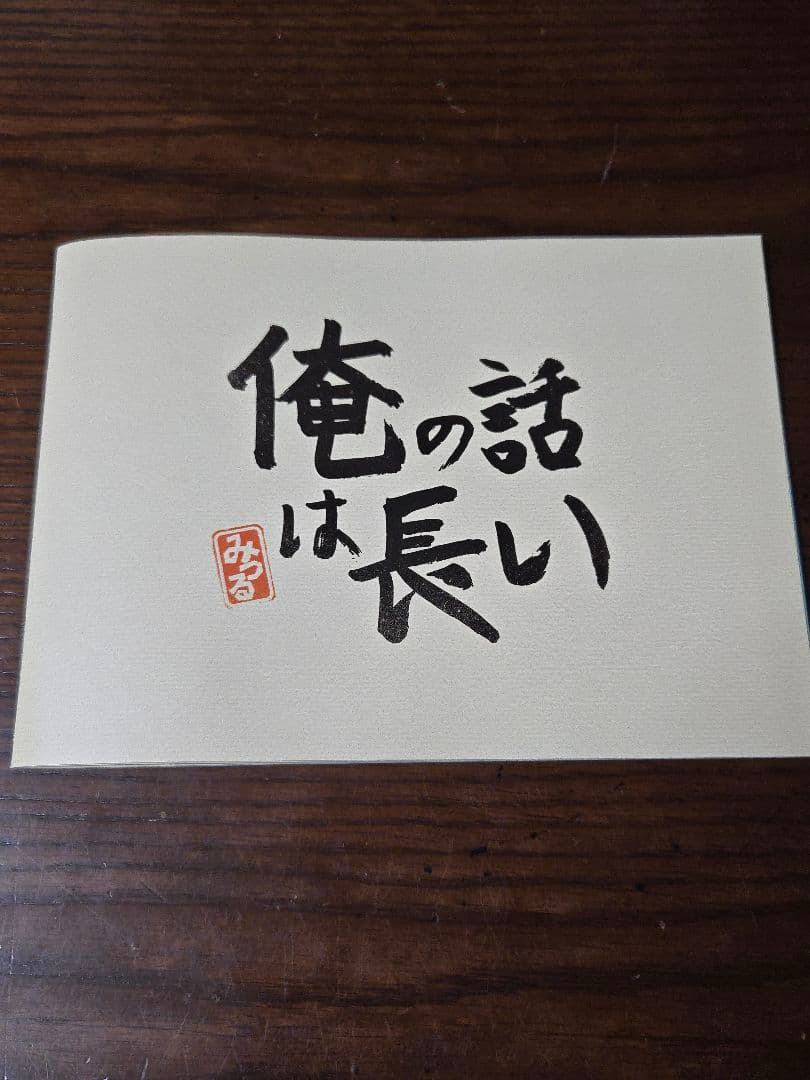 俺の話
は長い
みつる